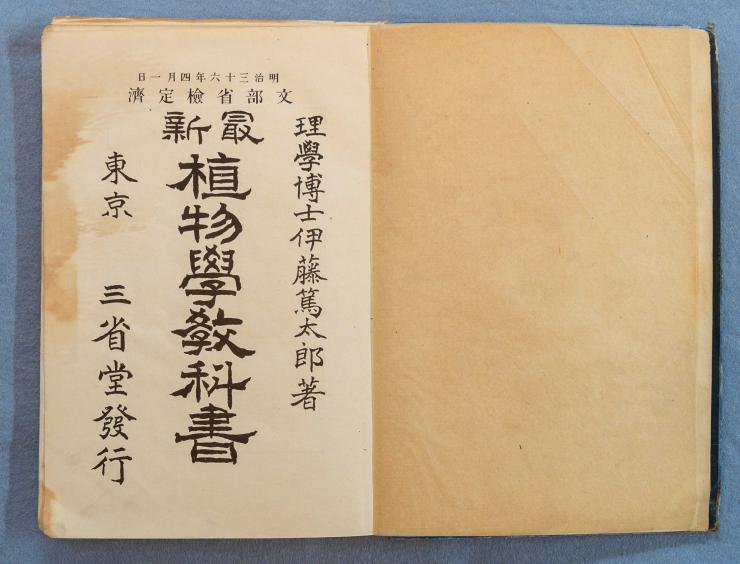 明治三十六年四月一日
文部省檢定濟
理學博士伊藤篤太郎著
最新
植物學教科書
東京　三省堂發行